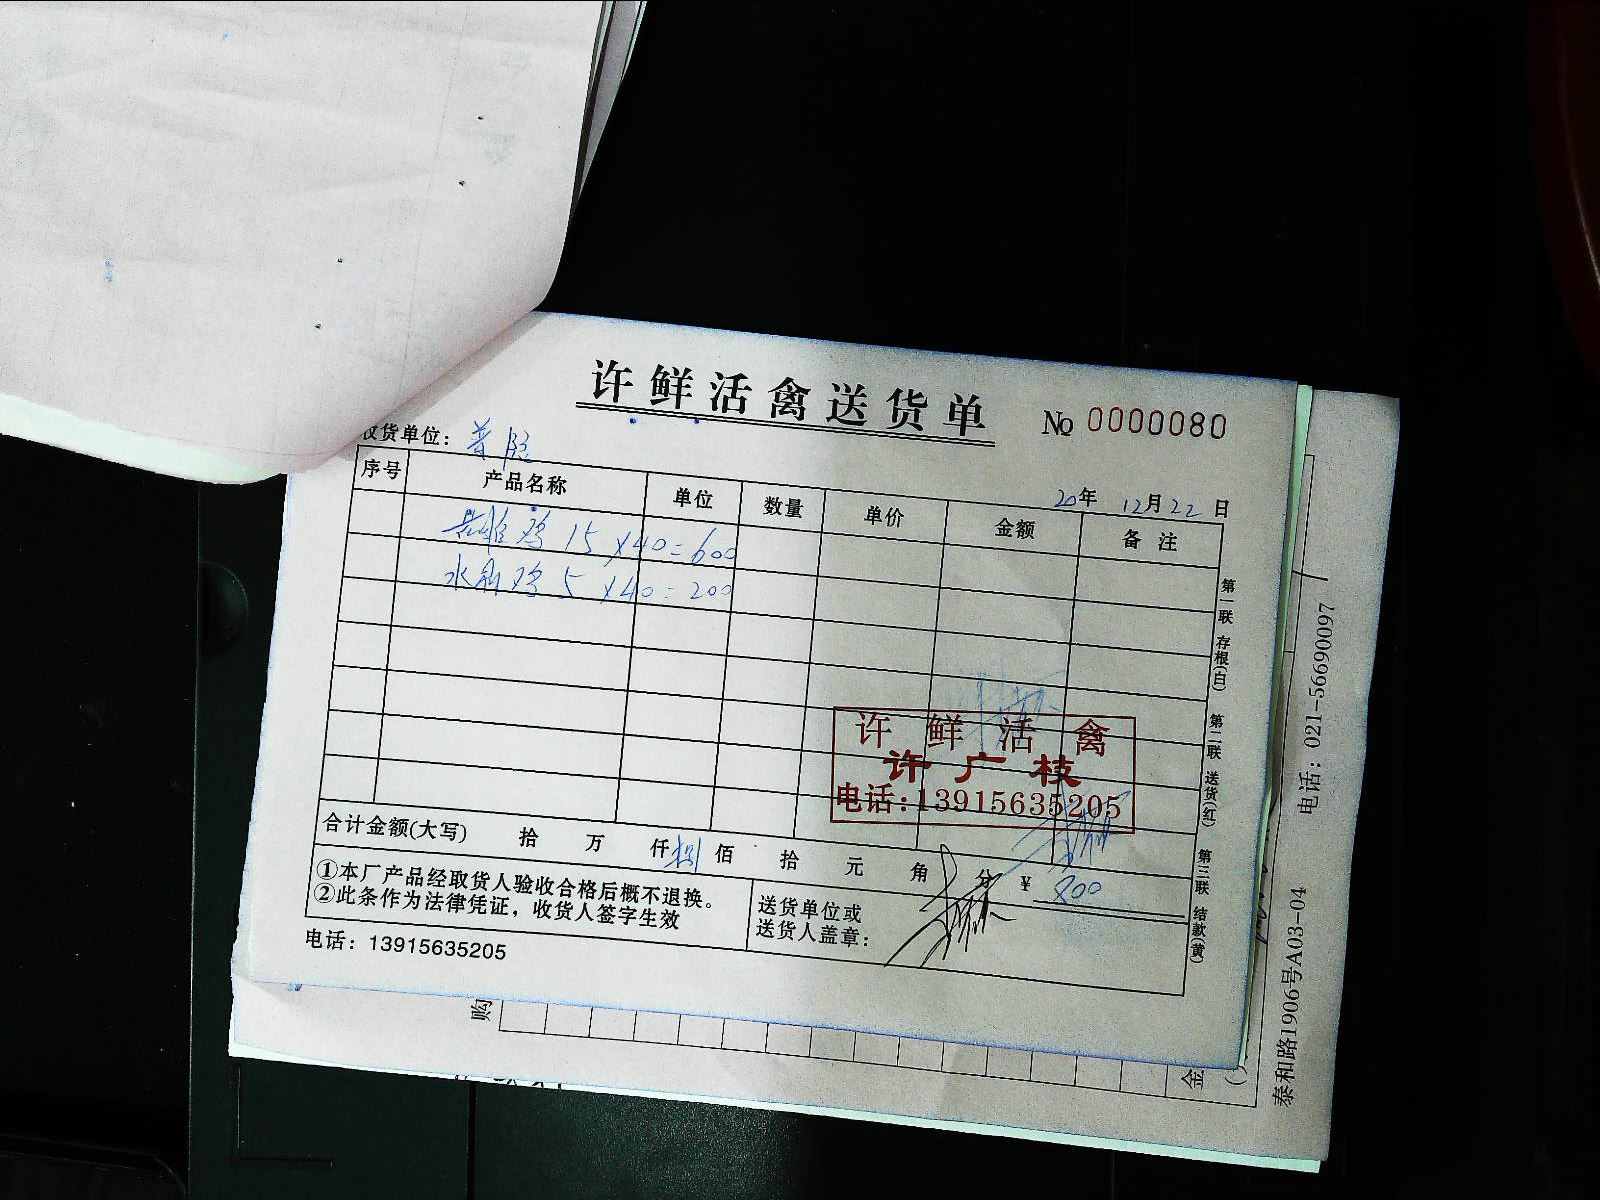 许鲜活禽送货单 № 0000080
收货单位: 普照
20年 12月 22日
序号 产品名称 单位 数量 单价 金额 备注
鸡 15 × 40 = 600
水 鸡 5 × 40 = 200
许鲜活禽
许广枝
电话:13915635205
合计金额(大写) 拾 万 仟 捌 佰 拾 元 角 分 ¥ 800
①本厂产品经取货人验收合格后概不退换。
②此条作为法律凭证，收货人签字生效
送货单位或
送货人盖章:
电话: 13915635205
第一联 存根(白)
第二联 送货(红)
第三联 结款(黄)
购
金
泰和路1906号A03-04 电话: 021-56690097